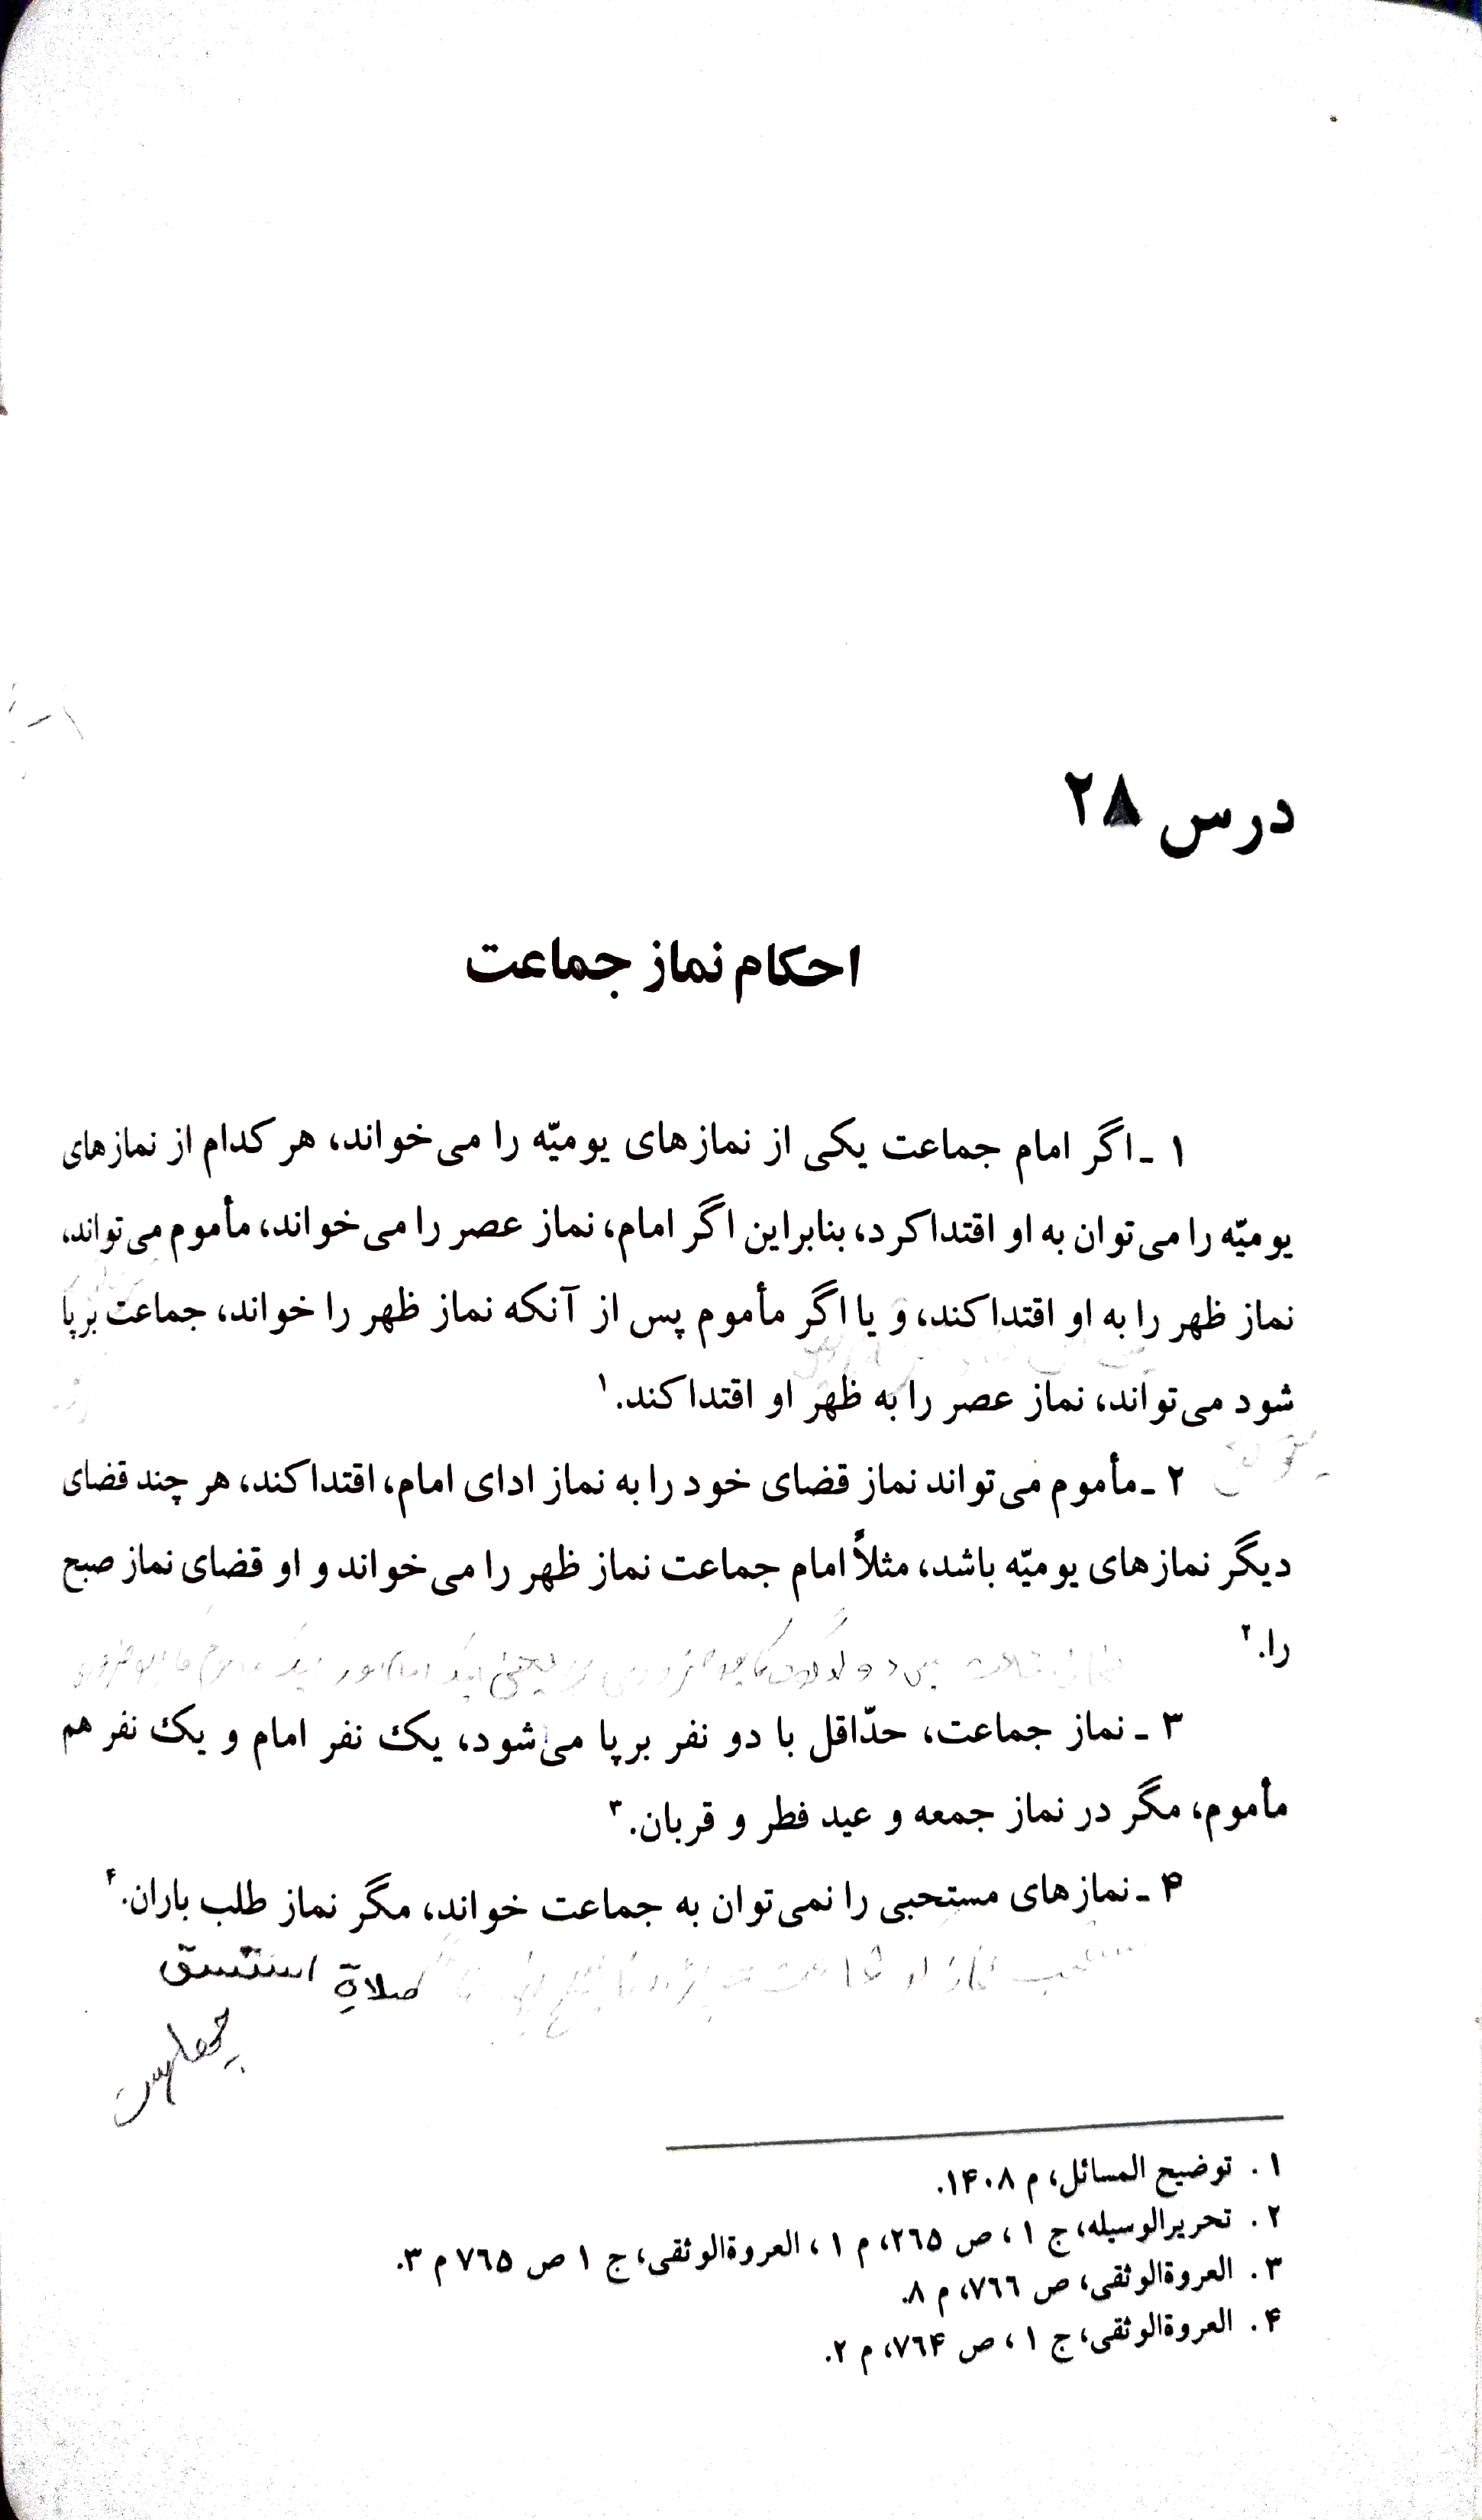 درس ۲۸
احکام نماز جماعت
۱ ـ اگر امام جماعت یکی از نمازهای یومیّه را می‌خواند، هر کدام از نمازهای
یومیّه را می‌توان به او اقتدا کرد، بنابراین اگر امام، نماز عصر را می‌خواند، مأموم می‌تواند،
نماز ظهر را به او اقتدا کند، و یا اگر مأموم پس از آنکه نماز ظهر را خواند، جماعت برپا
شود می‌تواند، نماز عصر را به ظهر او اقتدا کند.۱
۲ ـ مأموم می‌تواند نماز قضای خود را به نماز ادای امام، اقتدا کند، هر چند قضای
دیگر نمازهای یومیّه باشد، مثلاً امام جماعت نماز ظهر را می‌خواند و او قضای نماز صبح
را.۲
۳ ـ نماز جماعت، حدّاقل با دو نفر برپا می‌شود، یک نفر امام و یک نفر هم
مأموم، مگر در نماز جمعه و عید فطر و قربان.۳
۴ ـ نمازهای مستحبی را نمی‌توان به جماعت خواند، مگر نماز طلب باران.۴
صلاةِ
۱. توضیح المسائل، م ۱۴۰۸.
۲. تحریرالوسیله، ج ۱، ص ۲۶۵، م ۱، العروةالوثقی، ج ۱ ص ۷۶۵ م ۳.
۳. العروةالوثقی، ص ۷۶۶، م ۸.
۴. العروةالوثقی، ج ۱، ص ۷۶۴، م ۲.